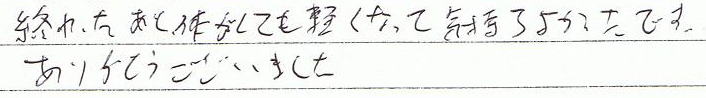 終わったあと体がとても軽くなって気持ちよかったです。
ありがとうございました